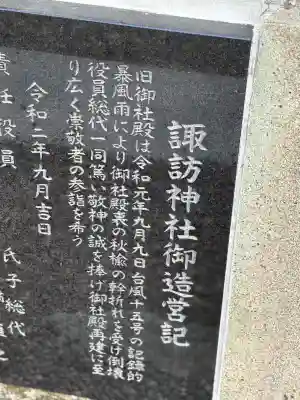 諏訪神社御造営記
旧御社殿は令和元年九月九日台風十五号の記録的
暴風雨により御社殿裏の秋楡の幹折れを受け倒壊
役員総代一同篤い敬神の誠を捧げ御社殿再建に至
り広く崇敬者の参詣を希う
令和二年九月吉日
責任役員
氏子総代